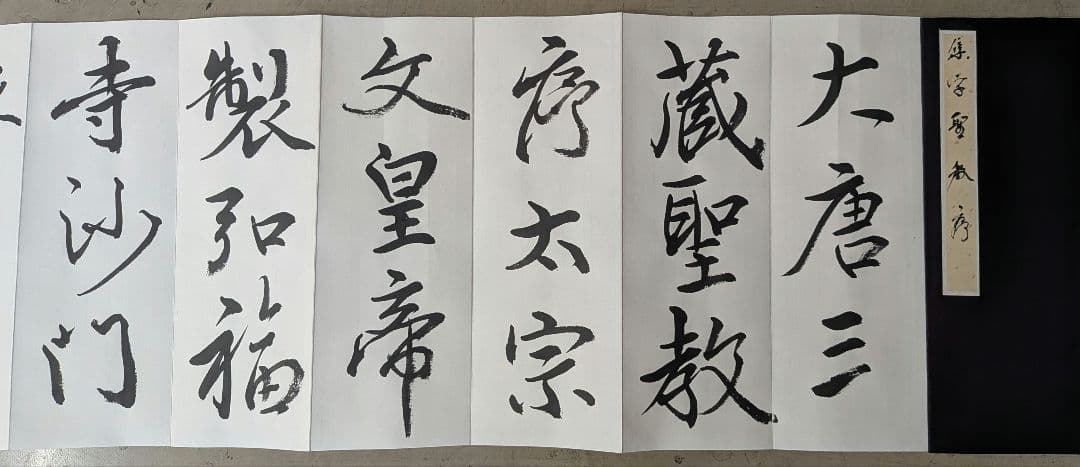 集字聖教序
大唐三
藏聖教
序太宗
文皇帝
製弘福
寺沙門